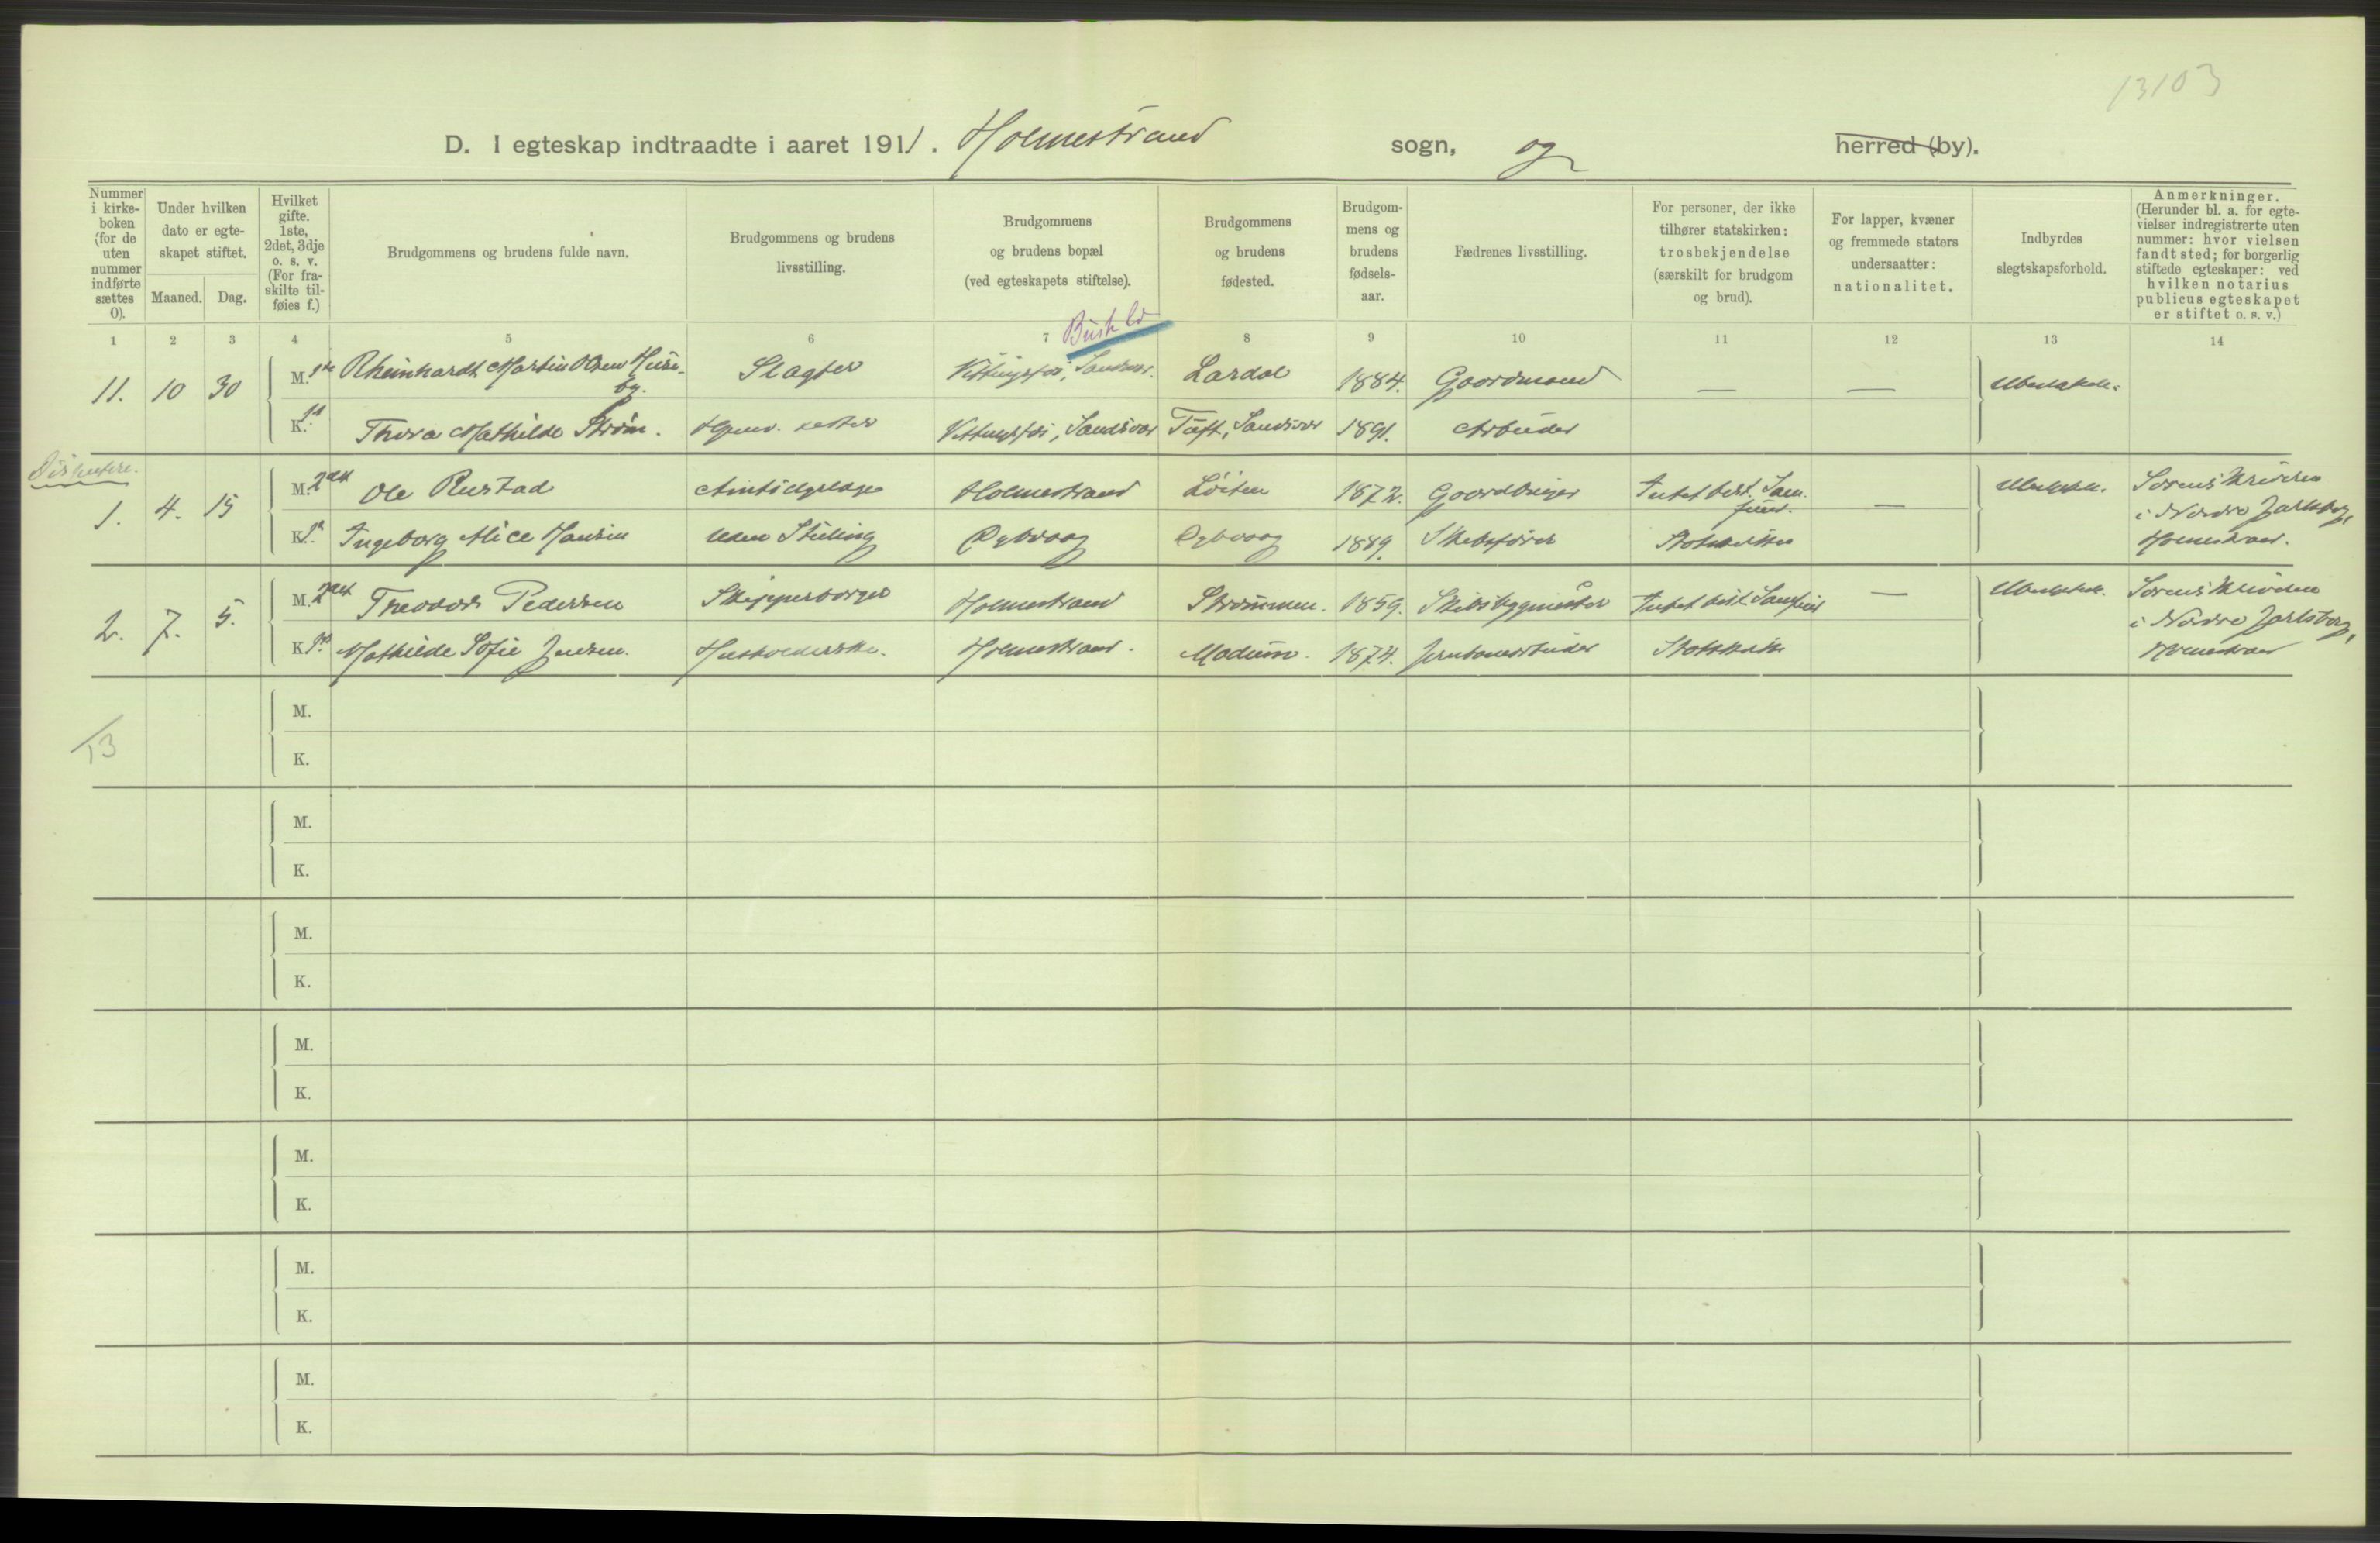 13103
D. I egteskap indtraadte i aaret 1911. Holmestrand sogn, og herred (by).
Nummer i kirke-boken (for de uten nummer indførte sættes 0).
Under hvilken dato er egte-skapet stiftet.
Maaned. Dag.
Hvilket gifte. 1ste, 2det, 3dje o. s. v. (For fra-skilte til-føies f.)
Brudgommens og brudens fulde navn.
Brudgommens og brudens livsstilling.
Brudgommens og brudens bopæl (ved egteskapets stiftelse).
Brudgommens og brudens fødested.
Brudgom-mens og brudens fødsels-aar.
Fædrenes livsstilling.
For personer, der ikke tilhører statskirken: trosbekjendelse (særskilt for brudgom og brud).
For lapper, kvæner og fremmede staters undersaatter: nationalitet.
Indbyrdes slegtskapsforhold.
Anmerkninger. (Herunder bl. a. for egte-vielser indregistrerte uten nummer: hvor vielsen fandt sted; for borgerlig stiftede egteskaper: ved hvilken notarius publicus egteskapet er stiftet o. s. v.)
1 2 3 4 5 6 7 8 9 10 11 12 13 14
11. 10 30 M. 1ste Rheinhardt Martin Olsen Huse-by. Slagter Vittingfos, Sandsvær. Lardal 1884. Gaardmand — —
K. 1st Thora Mathilde Strøm. Vittingfos, Sandsvær Tuft, Sandsvær 1891. Arbeider
Dissentere.
1. 4. 15 M. 2det Ole Rustad Amtsdyrlæge Holmestrand Løiten 1872. Gaardbruger Intet best. Sam-fund. — Ubeslektede. Sorenskriveren
K. 1st Ingeborg Alice Hansen Uden Stilling Dybvaag Dybvaag 1889. Skibsfører Statskirken i Nordre Jarlsberg, Holmestrand.
2. 7. 5. M. 2det Theodor Pedersen Skipperborger Holmestrand Strømmen. 1859. Skibsbygmester Intet best. Samfund — Ubeslektede. Sorenskriveren
K. 1st Mathilde Sofie Jensen. Husholderske. Holmestrand. Modum. 1874. Jernbanearbeider Statskirken i Nordre Jarlsberg, Holmestrand
M.
13
K.
M.
K.
M.
K.
M.
K.
M.
K.
M.
K.
M.
K.